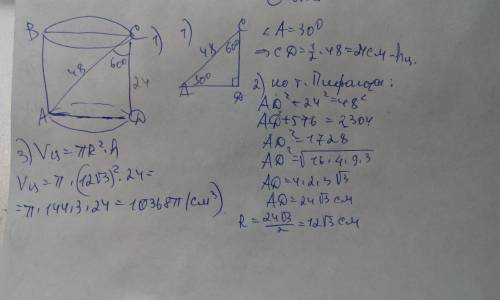 B
C
48
60°
24
A
D
1)
C
48
60°
30°
A
D
∠A=30°
⇒ CD=1/2·48=24см-hц.
2) по т. Пифагора:
AD²+24²=48²
AD²+576=2304
AD²=1728
AD²=√16·4·9·3
AD=4·2·3√3
AD=24√3 см
R=24√3/2=12√3 см
3) Vц=πR²·h
Vц=π·(12√3)²·24=
=π·144·3·24=10368π(см³)